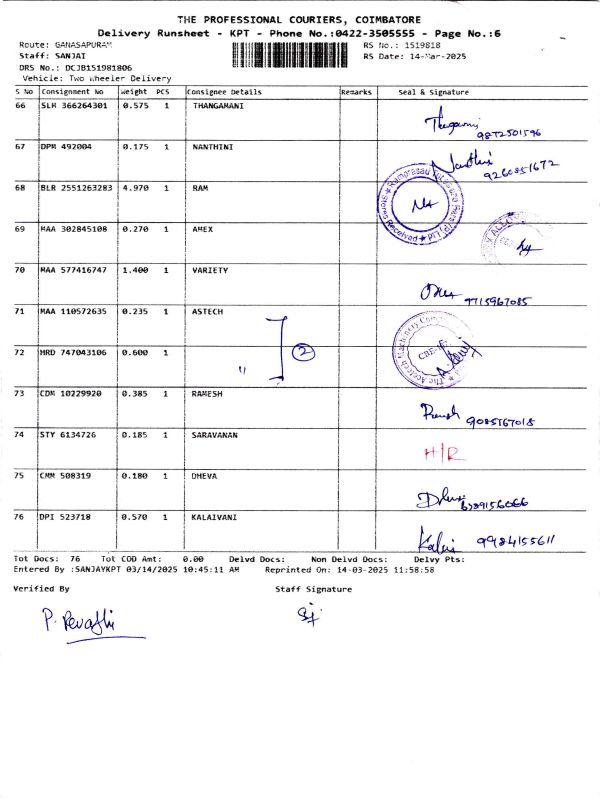 THE PROFESSIONAL COURIERS, COIMBATORE
Delivery Runsheet - KPT - Phone No.:0422-3505555 - Page No.:6
Route: GANASAPURAM RS No.: 1519818
Staff: SANJAI RS Date: 14-Mar-2025
DRS No.: DCJB151981806
Vehicle: Two Wheeler Delivery
S No Consignment No Weight PCS Consignee Details Remarks Seal & Signature
66 SLM 366264301 0.575 1 THANGAMANI
9872501596
67 DPM 492004 0.175 1 NANTHINI
Nanthini 9260851672
68 BLR 2551263283 4.970 1 RAM
69 MAA 302845108 0.270 1 AMEX
70 MAA 577416747 1.400 1 VARIETY
9715967085
71 MAA 110572635 0.235 1 ASTECH
72 MRD 747043106 0.600 1 " 2
73 CDM 10229920 0.385 1 RAMESH
9085767018
74 STY 6134726 0.185 1 SARAVANAN
H/R
75 CMM 508319 0.180 1 DHEVA
76 DPI 523718 0.570 1 KALAIVANI
9984155611
Tot Docs: 76 Tot COD Amt: 0.00 Delvd Docs: Non Delvd Docs: Delvy Pts:
Entered By :SANJAYKPT 03/14/2025 10:45:11 AM Reprinted On: 14-03-2025 11:58:58
Verified By Staff Signature
P. Revathi